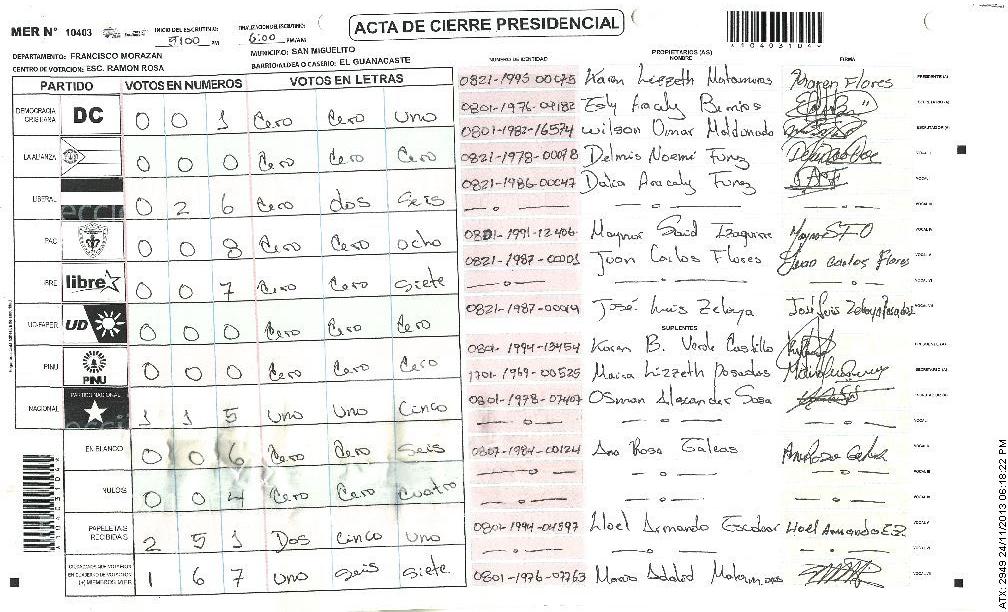 ACTA DE CIERRE PRESIDENCIAL
MER N° 10403
INICIO DEL ESCRUTINIO: 5:00 PM
FINALIZACION DEL ESCRUTINIO: 6:00 PM/AM
DEPARTAMENTO: FRANCISCO MORAZAN
MUNICIPIO: SAN MIGUELITO
CENTRO DE VOTACION: ESC. RAMON ROSA
BARRIO/ALDEA O CASERIO: EL GUANACASTE
PARTIDO VOTOS EN NUMEROS VOTOS EN LETRAS
DEMOCRACIA CRISTIANA DC 0 0 1 Cero Cero Uno
LA ALIANZA 0 0 0 Cero Cero Cero
LIBERAL 0 2 6 Cero dos Seis
PAC 0 0 8 Cero Cero Ocho
LIBRE libre 0 0 7 Cero Cero Siete
UD-FAPER UD 0 0 0 Cero Cero Cero
PINU PINU 0 0 0 Cero Cero Cero
NACIONAL PARTIDO NACIONAL 1 1 5 Uno Uno Cinco
EN BLANCO 0 0 6 Cero Cero Seis
NULOS 0 0 4 Cero Cero Cuatro
PAPELETAS RECIBIDAS 2 5 1 Dos Cinco Uno
CIUDADANOS QUE VOTARON EN CUADERNO DE VOTACION (+) MIEMBROS MER 1 6 7 Uno Seis Siete
PROPIETARIOS (AS)
NUMERO DE IDENTIDAD NOMBRE FIRMA
0821-1995-00075 Karen Lizzeth Matamoros Karen Flores PRESIDENTE (A)
0801-1976-09182 Esly Aracely Barrios SECRETARIO (A)
0801-1982-16574 Wilson Omar Maldonado ESCRUTADOR (A)
0821-1978-00098 Delmis Noemi Funez VOCAL I
0821-1986-00047 Dalia Aracaly Funez VOCAL II
VOCAL III
0801-1991-12406 Maynor Said Izaguirre VOCAL IV
0821-1987-00001 Juan Carlos Flores Juan Carlos Flores VOCAL V
VOCAL VI
0821-1987-00019 José Luis Zelaya José Luis Zelaya VOCAL VII
SUPLENTES
0801-1994-13454 Karen B. Verde Castillo PRESIDENTE (A)
1701-1969-00525 Maira Lizzeth Posadas SECRETARIO (A)
0801-1978-07407 Osman Alexander Sosa ESCRUTADOR (A)
VOCAL I
0807-1984-00124 Ana Rosa Galeas VOCAL II
VOCAL III
VOCAL IV
0801-1994-04597 Lloel Armando Escobar VOCAL V
VOCAL VI
0801-1976-07763 VOCAL VII
ATX: 2949 24/11/2013 06:18:22 PM